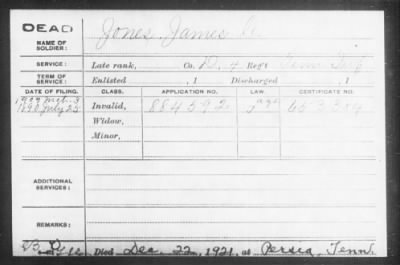 DEAD
NAME OF SOLDIER: Jones, James
SERVICE: Late rank, Co. D, 4 Reg't Tenn. Inf
TERM OF SERVICE: Enlisted , 1 Discharged , 1
DATE OF FILING. CLASS. APPLICATION NO. LAW. CERTIFICATE NO.
1890 July 25 Invalid, 884592
Widow,
Minor,
ADDITIONAL SERVICES:
REMARKS:
Died Dec. 22, 1921, at Persia, Tenn.